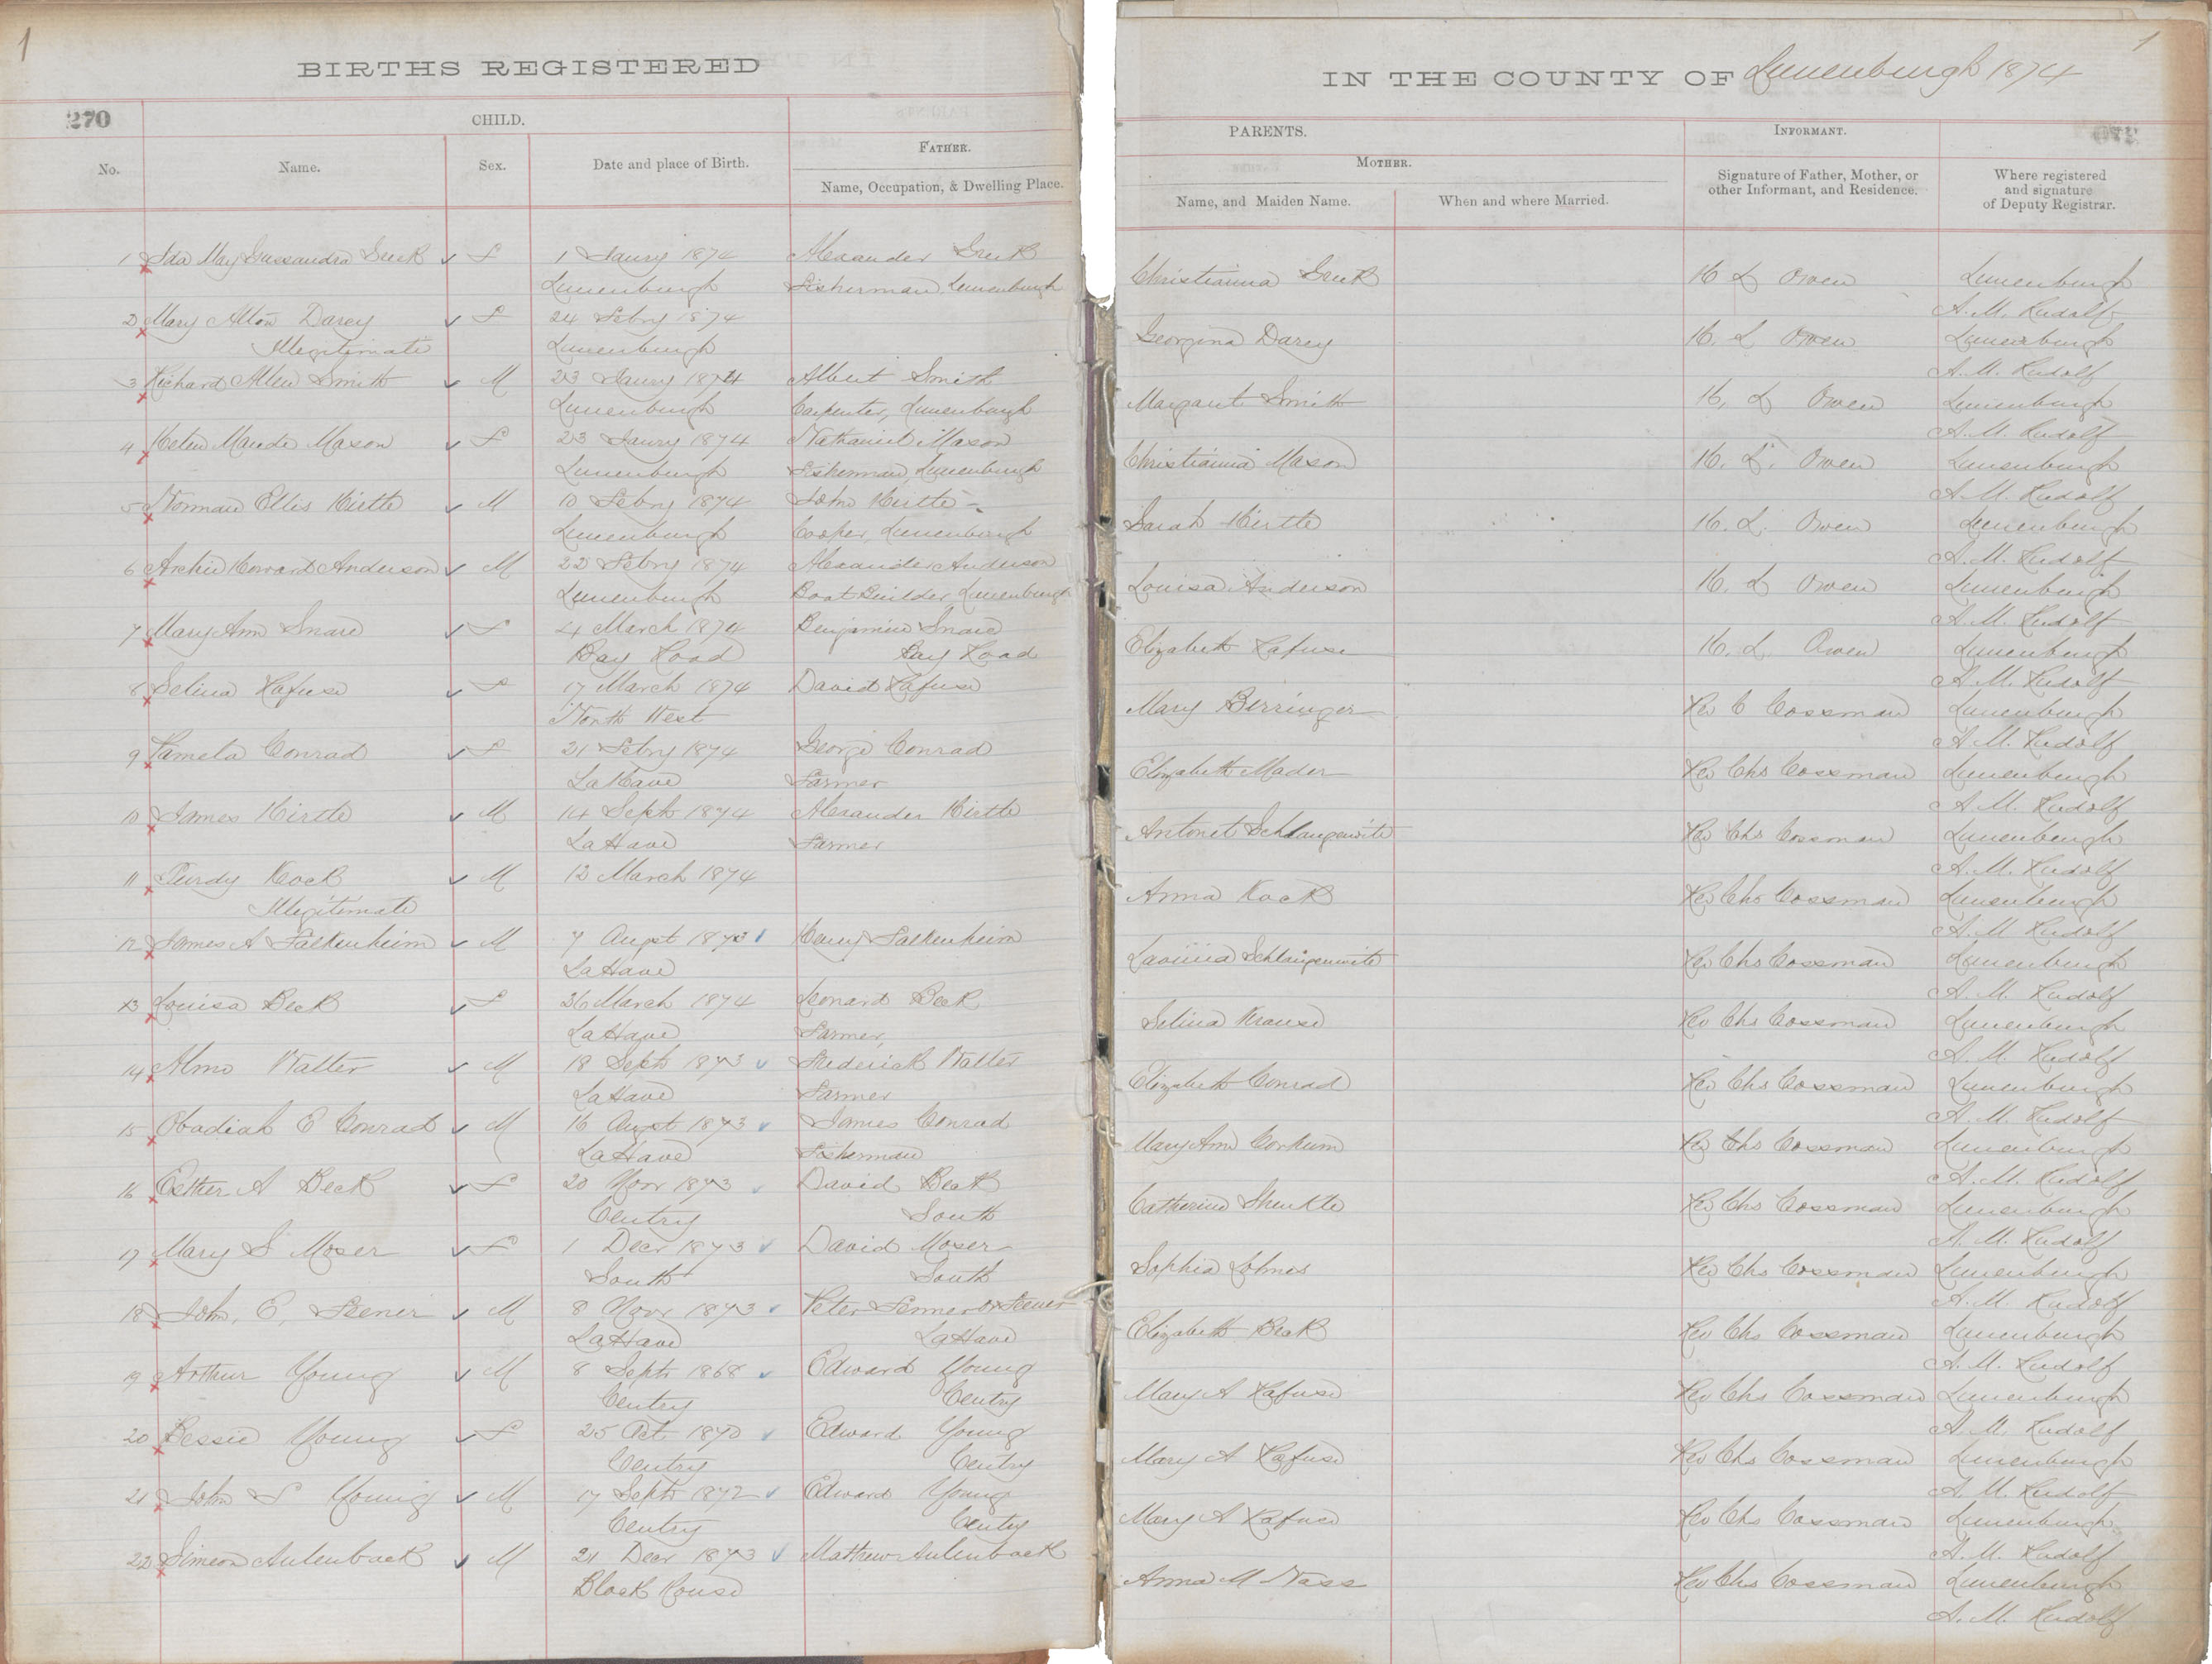 1
BIRTHS REGISTERED
270
CHILD.
FATHER.
No.
Name.
Sex.
Date and place of Birth.
Name, Occupation, & Dwelling Place.
1 Ida May Cassandra Greek F 1 Jany 1874 Alexander Greek
Lunenburgh Fisherman, Lunenburgh
2 Mary Alton Darey F 24 Febry 1874
Illegitimate Lunenburgh
3 Richard Allen Smith M 23 Jany 1874 Albert Smith
Lunenburgh Carpenter, Lunenburgh
4 Maude Mason F 23 Jany 1874 Nathaniel Mason
Lunenburgh Fisherman, Lunenburgh
5 Norman Ellis Hirtle M 10 Febry 1874 John Hirtle
Lunenburgh Cooper, Lunenburgh
6 Archie Howard Anderson M 22 Febry 1874 Alexander Anderson
Lunenburgh Boat Builder Lunenburgh
7 Mary Ann Snare F 4 March 1874 Benjamin Snare
Bay Road Bay Road
8 Selina Rafuse F 17 March 1874 David Rafuse
North West
9 Pamela Conrad F 21 Febry 1874 George Conrad
LaHave Farmer
10 James Hirtle M 14 Sept 1874 Alexander Hirtle
LaHave Farmer
11 Purdy Kock M 12 March 1874
Illegitimate
12 James A Falkenheim M 7 Augst 1873 Henry Falkenheim
LaHave
13 Louisa Beck F 26 March 1874 Leonard Beck
LaHave Farmer,
14 Almo Walter M 18 Sept 1873 Frederick Walter
LaHave Farmer
15 Obadiah E Conrad M 16 Augst 1873 James Conrad
LaHave Fisherman
16 Esther A Beck F 20 Novr 1873 David Beck
Centry South
17 Mary S Moser F 1 Decr 1873 David Moser
South South
18 John, E, Feener M 8 Novr 1873 Peter Fenner or Feener
LaHave LaHave
19 Arthur Young M 8 Sept 1868 Edward Young
Centry Centry
20 Bessie Young F 25 Oct 1870 Edward Young
Centry Centry
21 John S Young M 17 Sept 1872 Edward Young
Centry Centry
22 Simeon Aulenback M 21 Decr 1873 Mathew Aulenback
Block House
1
IN THE COUNTY OF Lunenburgh 1874
PARENTS.
INFORMANT.
MOTHER.
Name, and Maiden Name.
When and where Married.
Signature of Father, Mother, or
other Informant, and Residence.
Where registered
and signature
of Deputy Registrar.
Christianna Greek H L Owen Lunenburgh
A. M. Rudolf
Georgina Darey H. L Owen Lunenburgh
A. M. Rudolf
Margaret Smith H, L Owen Lunenburgh
A. M. Rudolf
Christianna Mason H. L. Owen Lunenburgh
A. M. Rudolf
Sarah Hirtle H. L. Owen Lunenburgh
A. M. Rudolf
Louisa Anderson H. L Owen Lunenburgh
A. M. Rudolf
Elizabeth Rafuse H. L. Owen Lunenburgh
A. M. Rudolf
Mary Berringer Rev C Cossman Lunenburgh
A. M. Rudolf
Elizabeth Mader Rev Chs Cossman Lunenburgh
A. M. Rudolf
Antonet Schlaugenwite Rev Chs Cossman Lunenburgh
A. M. Rudolf
Anna Kock Rev Chs Cossman Lunenburgh
A. M. Rudolf
Lavinia Schlaugenwite Rev Chs Cossman Lunenburgh
A. M. Rudolf
Selina Krause Rev Chs Cossman Lunenburgh
A. M. Rudolf
Elizabeth Conrad Rev Chs Cossman Lunenburgh
A. M. Rudolf
Mary Ann Corkum Rev Chs Cossman Lunenburgh
A. M. Rudolf
Catherine Rev Chs Cossman Lunenburgh
A. M. Rudolf
Sophia Lohnes Rev Chs Cossman Lunenburgh
A. M. Rudolf
Elizabeth Beck Rev Chs Cossman Lunenburgh
A. M. Rudolf
Mary A Rafuse Rev Chs Cossman Lunenburgh
A. M. Rudolf
Mary A Rafuse Rev Chs Cossman Lunenburgh
A. M. Rudolf
Mary A Rafuse Rev Chs Cossman Lunenburgh
A. M. Rudolf
Anna M Nass Rev Chs Cossman Lunenburgh
A. M. Rudolf